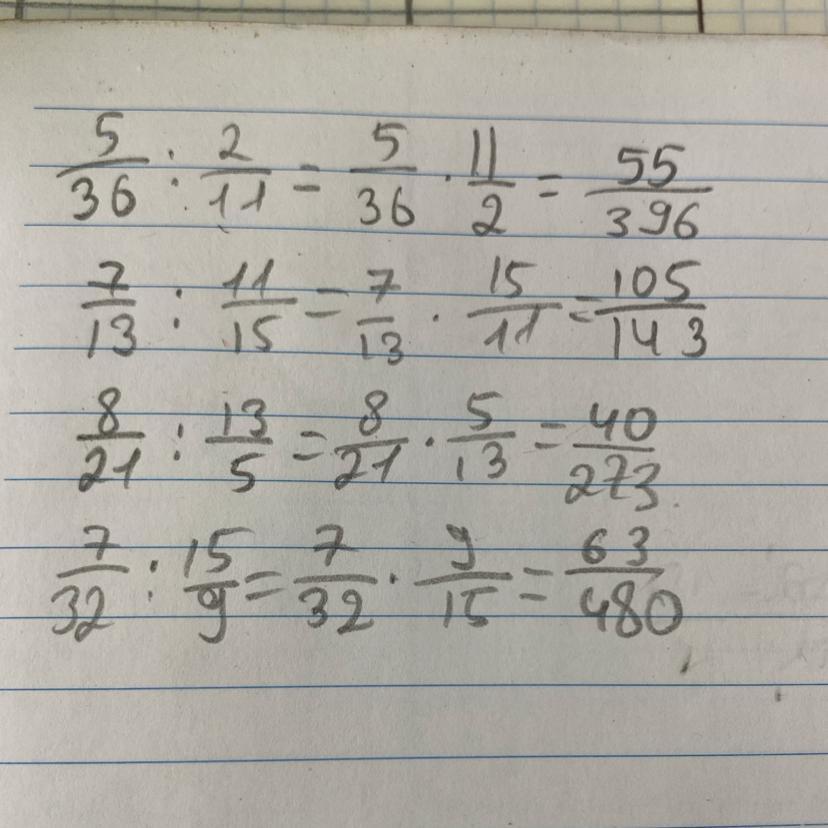 5/36 : 2/11 = 5/36 · 11/2 = 55/396
7/13 : 11/15 = 7/13 · 15/11 = 105/143
8/21 : 13/5 = 8/21 · 5/13 = 40/273
7/32 : 15/9 = 7/32 · 9/15 = 63/480